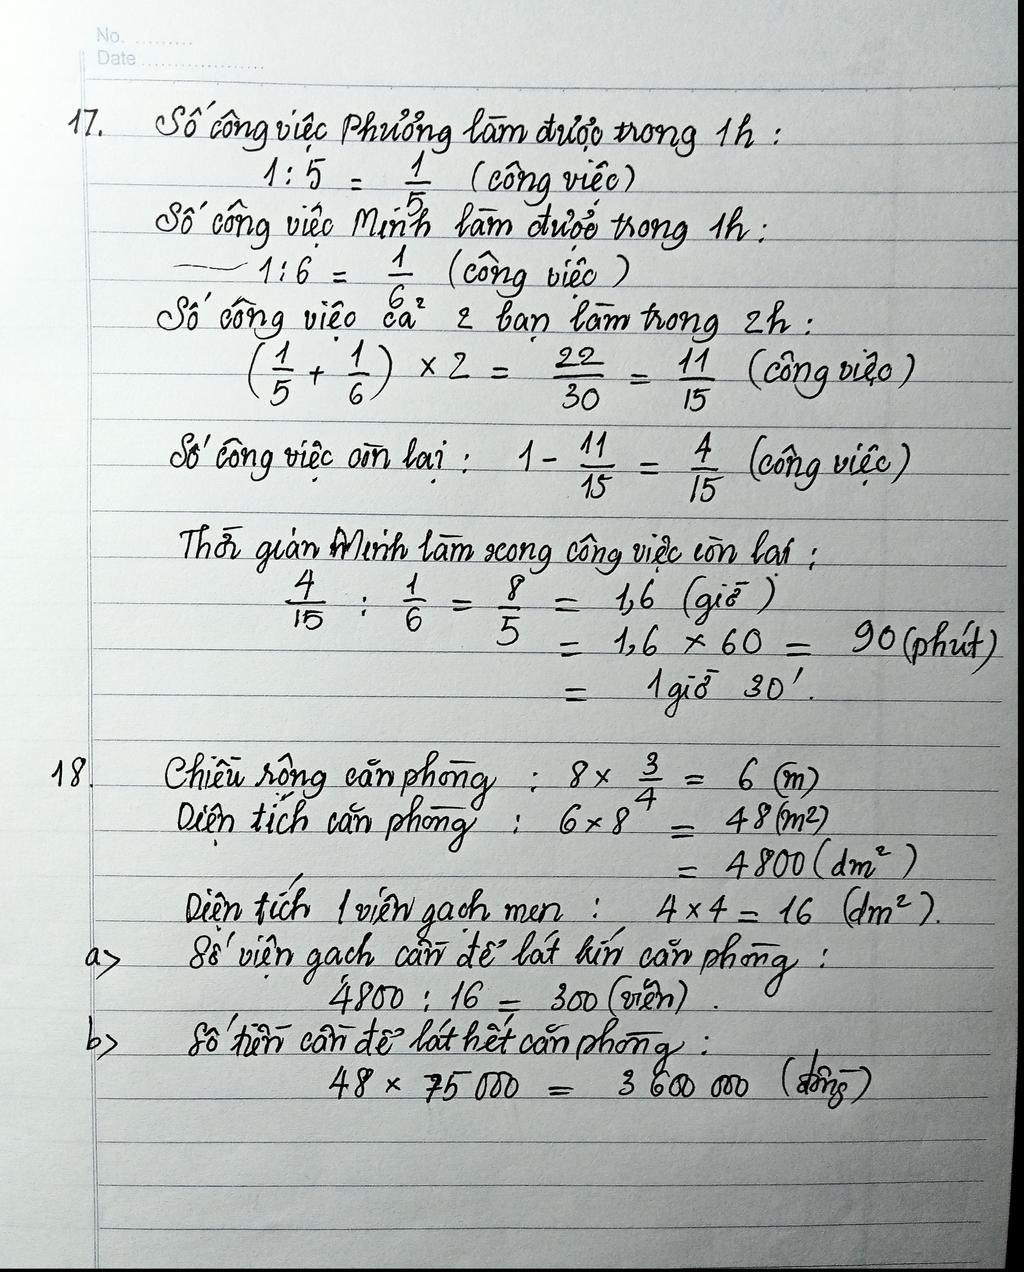 No. .........
Date ...................
17. Số công việc Phượng làm được trong 1h :
1 : 5 = 1/5 (công việc)
Số công việc Minh làm được trong 1h :
1 : 6 = 1/6 (công việc)
Số công việc cả 2 bạn làm trong 2h :
(1/5 + 1/6) × 2 = 22/30 = 11/15 (công việc)
Số công việc còn lại : 1 - 11/15 = 4/15 (công việc)
Thời gian Minh làm xong công việc còn lại :
4/15 : 1/6 = 8/5 = 1,6 (giờ)
= 1,6 × 60 = 90 (phút)
= 1 giờ 30'.
18. Chiều rộng căn phòng : 8 × 3/4 = 6 (m)
Diện tích căn phòng : 6 × 8 = 48 (m²)
= 4800 (dm²)
Diện tích 1 viên gạch men : 4 × 4 = 16 (dm²).
a> Số viên gạch cần để lát kín căn phòng :
4800 : 16 = 300 (viên) .
b> Số tiền cần để lát hết căn phòng :
48 × 75 000 = 3 600 000 (đồng)